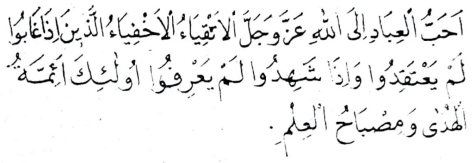 اَحَبُّ الْعِبَادِ اِلَى اللهِ عَزَّ وَجَلَّ الْاَتْقِيَاءُ الْاَخْفِيَاءُ الَّذِينَ اِذَا غَابُوا
لَمْ يَعْتَقِدُوا وَاِذَا شَهِدُوا لَمْ يَعْرِفُوا اُولٰئِكَ اَئِمَّةُ
الْهُدٰى وَمِصْبَاحُ الْعِلْمِ.